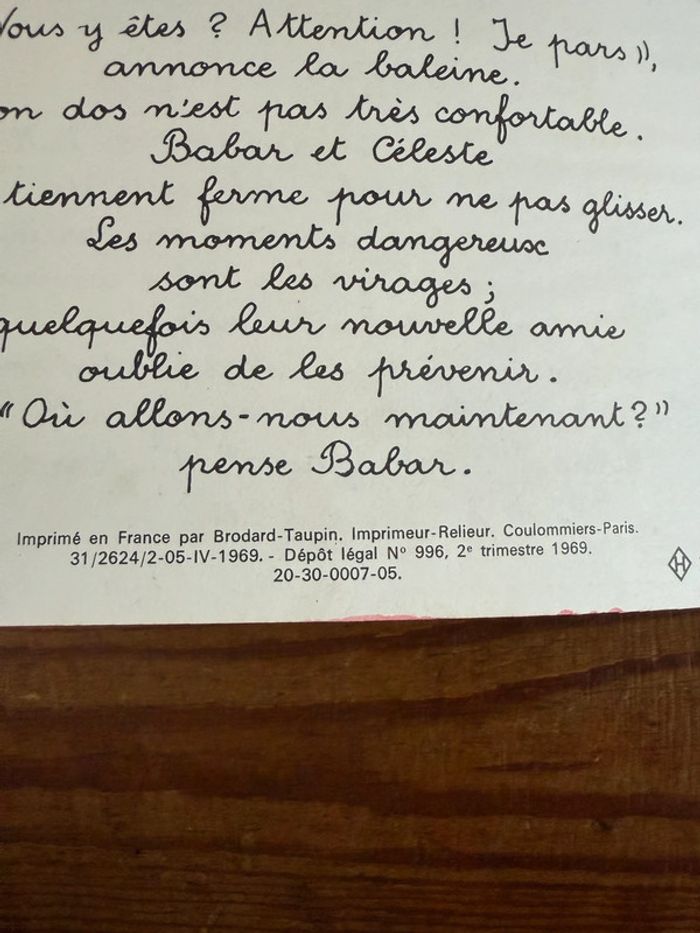 Vous y êtes ? Attention ! Je pars »,
annonce la baleine.
on dos n'est pas très confortable.
Babar et Céleste
tiennent ferme pour ne pas glisser.
Les moments dangereux
sont les virages ;
quelquefois leur nouvelle amie
oublie de les prévenir.
"Où allons-nous maintenant?"
pense Babar.
Imprimé en France par Brodard-Taupin. Imprimeur-Relieur. Coulommiers-Paris.
31/2624/2-05-IV-1969. - Dépôt légal Nº 996, 2e trimestre 1969.
20-30-0007-05.
H